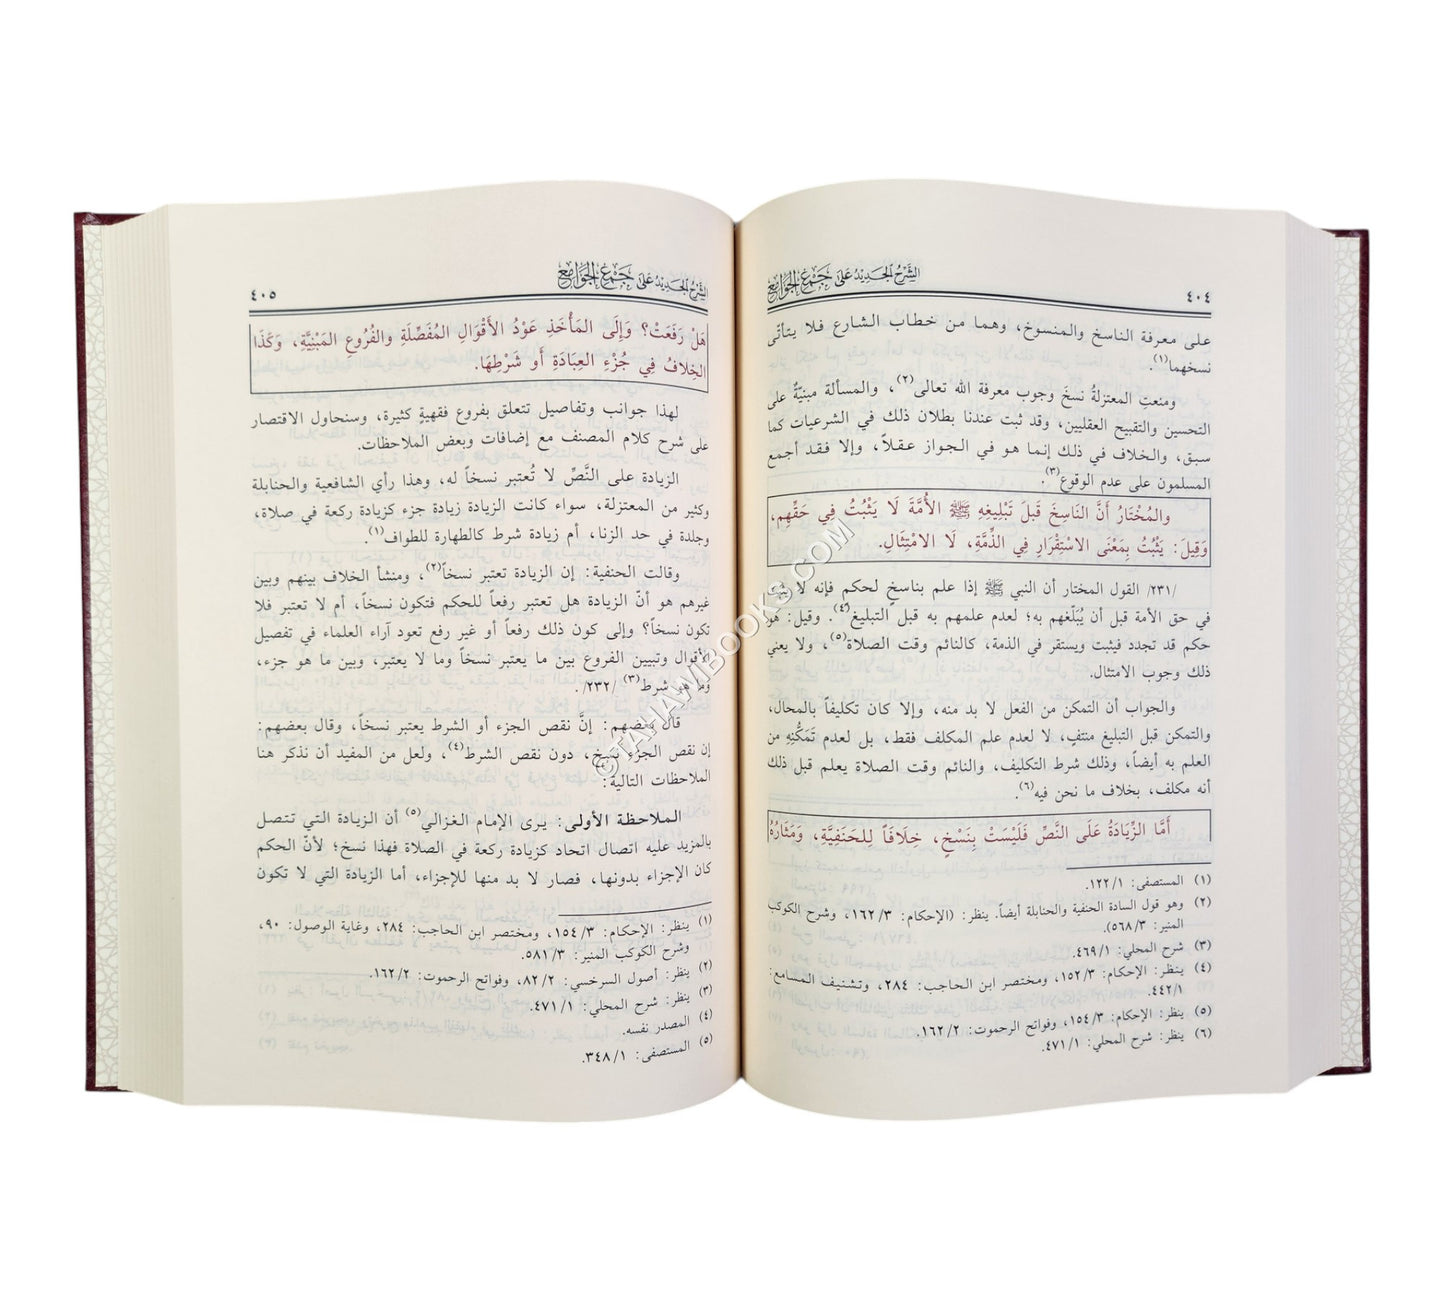 ٤٠٤
الشَّرْحُ الجَدِيْدُ عَلَى جَمْعِ الجَوَامِعِ
على معرفة الناسخ والمنسوخ، وهما من خطاب الشارع فلا يتأتّى
نسخهما(١).
ومنعتِ المعتزلةُ نسخَ وجوب معرفة الله تعالى(٢)، والمسألة مبنيّةٌ على
التحسين والتقبيح العقليين، وقد ثبت عندنا بطلان ذلك في الشرعيات كما
سبق، والخلاف في ذلك إنما هو في الجواز عقلاً، وإلا فقد أجمع
المسلمون على عدم الوقوع(٣).
والمُخْتَارُ أَنَّ النَاسِخَ قَبلَ تَبْلِيغِهِ ﷺ الأُمَّةَ لَا يَثْبُتُ فِي حَقِّهِم،
وَقِيلَ: يَثْبُتُ بِمَعْنَى الاسْتِقْرَارِ فِي الذِّمَّةِ، لَا الامْتِثَالِ.
/٢٣١/ القول المختار أن النبي ﷺ إذا علم بناسخٍ لحكم فإنه لا يثبت
في حق الأمة قبل أن يُبَلّغهم به؛ لعدم علمهم به قبل التبليغ(٤). وقيل: هو
حكم قد تجدد فيثبت ويستقر في الذمة، كالنائم وقت الصلاة(٥)، ولا يعني
ذلك وجوب الامتثال.
والجواب أن التمكن من الفعل لا بد منه، وإلا كان تكليفاً بالمحال،
والتمكن قبل التبليغ منتفٍ، لا لعدم علم المكلف فقط، بل لعدم تَمَكُّنِهِ من
العلم به أيضاً، وذلك شرط التكليف، والنائم وقت الصلاة يعلم قبل ذلك
أنه مكلف، بخلاف ما نحن فيه(٦).
أَمَّا الزِّيَادَةُ عَلَى النَّصِّ فَلَيْسَتْ بِنَسْخٍ، خِلَافَاً لِلحَنَفِيَّةِ، وَمَثَارُهُ
(١) المستصفى: ١٢٢/١.
(٢) وهو قول السادة الحنفية والحنابلة أيضاً. ينظر: (الإحكام: ١٦٢/٣، وشرح الكوكب
المنير: ٥٦٨/٣).
(٣) شرح المحلي: ٤٦٩/١.
(٤) ينظر: الإحكام: ١٥٢/٣، ومختصر ابن الحاجب: ٢٨٤، وتشنيف المسامع:
٤٤٢/١.
(٥) ينظر: الإحكام: ١٥٤/٣، وفواتح الرحموت: ١٦٢/٢.
(٦) ينظر: شرح المحلي: ٤٧١/١.
الشَّرْحُ الجَدِيْدُ عَلَى جَمْعِ الجَوَامِعِ
٤٠٥
هَلْ رَفَعَتْ؟ وَإِلَى المَأْخَذِ عَوْدُ الأَقْوَالِ المُفَصِّلَةِ والفُرُوعِ المَبْنِيَّةِ، وَكَذَا
الخِلافُ فِي جُزْءِ العِبَادَةِ أَو شَرْطِهَا.
لهذا جوانب وتفاصيل تتعلق بفروع فقهيةٍ كثيرة، وسنحاول الاقتصار
على شرح كلام المصنف مع إضافات وبعض الملاحظات.
الزيادة على النَّصِّ لا تُعتبر نسخاً له، وهذا رأي الشافعية والحنابلة
وكثير من المعتزلة، سواء كانت الزيادة زيادة جزء كزيادة ركعة في صلاة،
وجلدة في حد الزنا، أم زيادة شرط كالطهارة للطواف(١).
وقالت الحنفية: إن الزيادة تعتبر نسخاً(٢)، ومنشأ الخلاف بينهم وبين
غيرهم هو أنّ الزيادة هل تعتبر رفعاً للحكم فتكون نسخاً، أم لا تعتبر فلا
تكون نسخاً؟ وإلى كون ذلك رفعاً أو غير رفع تعود آراء العلماء في تفصيل
الأقوال وتبيين الفروع بين ما يعتبر نسخاً وما لا يعتبر، وبين ما هو جزء،
وما هو شرط(٣) /٢٣٢/.
قال بعضهم: إنَّ نقص الجزء أو الشرط يعتبر نسخاً، وقال بعضهم:
إن نقص الجزء نسخ، دون نقص الشرط(٤)، ولعل من المفيد أن نذكر هنا
الملاحظات التالية:
الملاحظة الأولى: يرى الإمام الغزالي(٥) أن الزيادة التي تتصل
بالمزيد عليه اتصال اتحاد كزيادة ركعة في الصلاة فهذا نسخ؛ لأنّ الحكم
كان الإجزاء بدونها، فصار لا بد منها للإجزاء، أما الزيادة التي لا تكون
(١) ينظر: الإحكام: ١٥٤/٣، ومختصر ابن الحاجب: ٢٨٤، وغاية الوصول: ٩٠،
وشرح الكوكب المنير: ٥٨١/٣.
(٢) ينظر: أصول السرخسي: ٨٢/٢، وفواتح الرحموت: ١٦٢/٢.
(٣) ينظر: شرح المحلي: ٤٧١/١.
(٤) المصدر نفسه.
(٥) المستصفى: ٣٤٨/١.
© TAHAWIBOOKS.COM